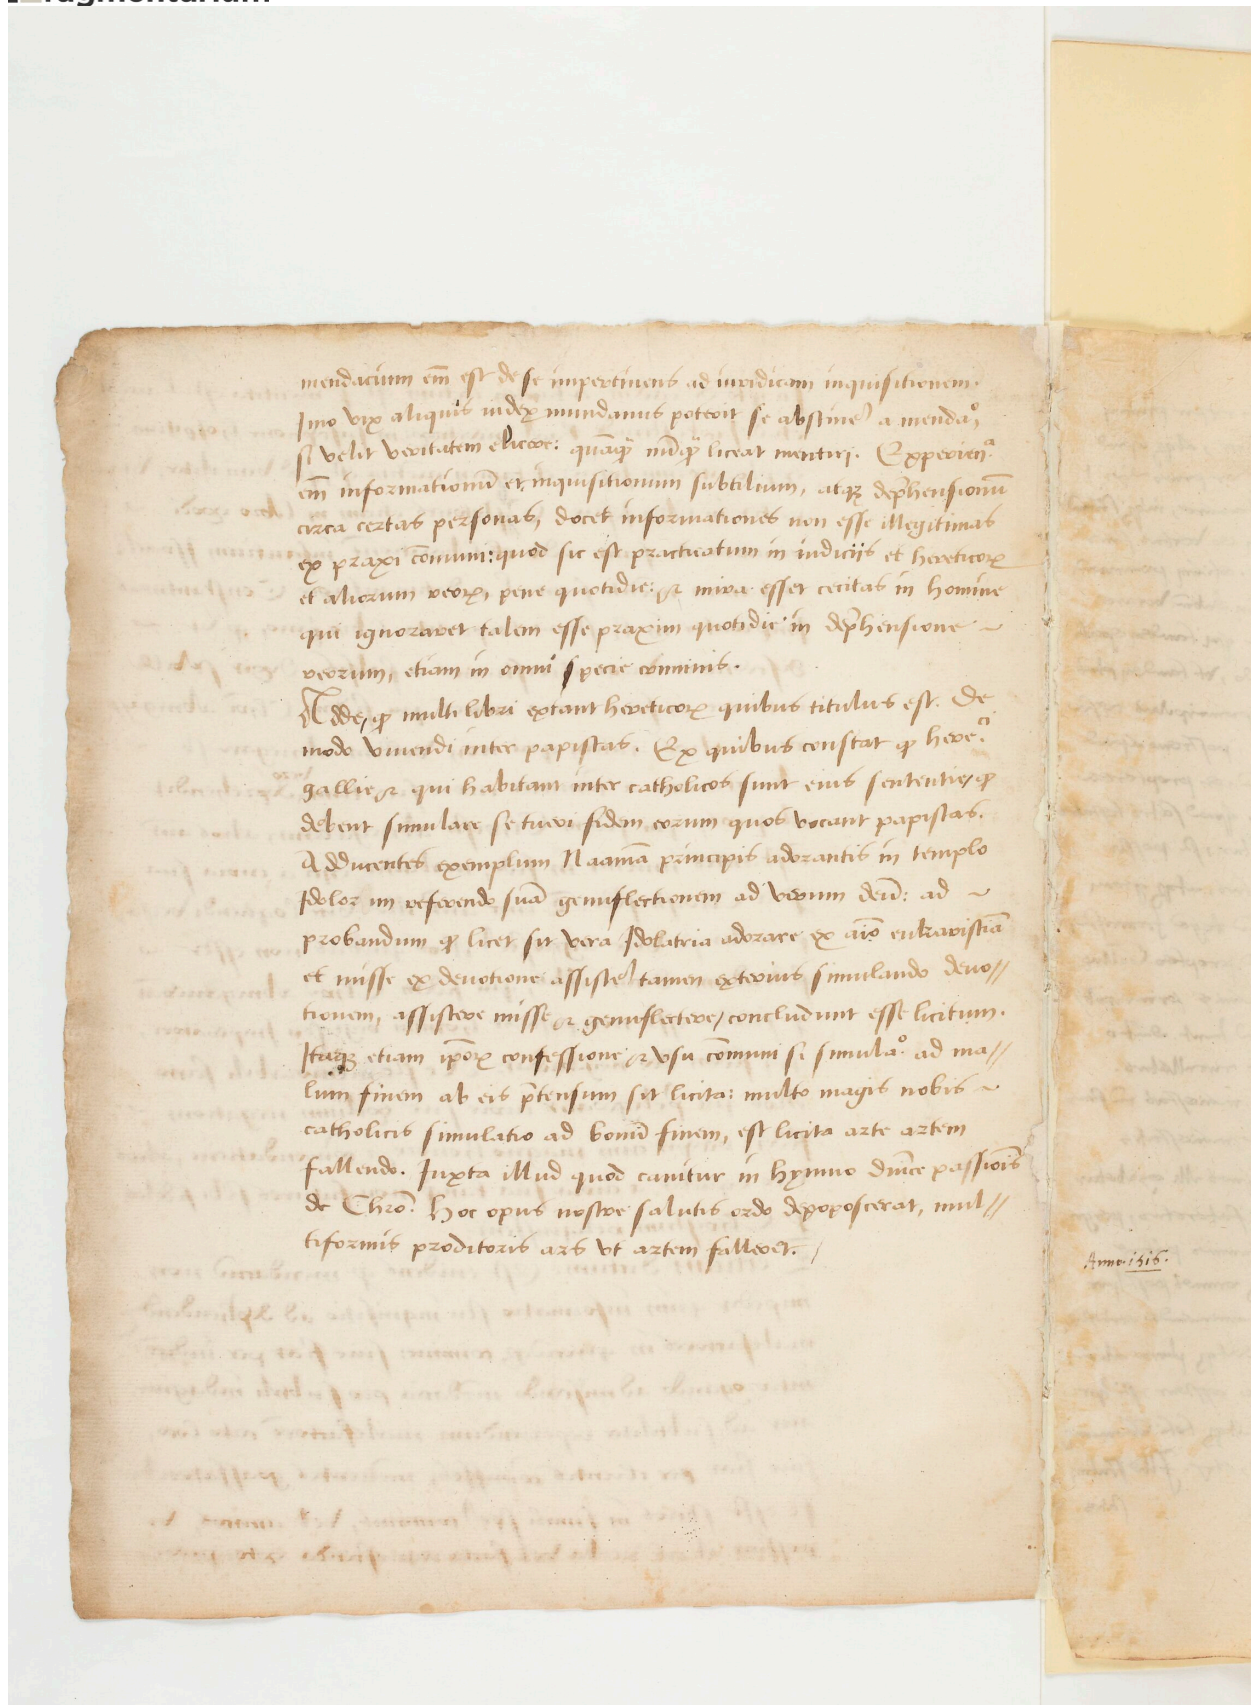 mendacium em̃ est de se impertinens ad iuridicam inquisitionem.
Imo vix aliquis iudex mundanus poterit se abstine) a mendaº,
si velit veritatem elicere: quāq̃ nūq̃ liceat mentiri. Experien.ª
em̃ informationū et inquisitionum subtilium, atqꝫ dep̃hensionū
circa certas personas, docet informationes non esse illegitimas
ex praxi cōmuni: quod sic est practicatum in iudiciis et hereticoꝝ
et aliorum reoꝝ, pene quotidie: & mira esset cecitas in homine
qui ignoraret talem esse praxim quotidie in dep̃hensione ~
reorum, etiam in omni specie criminis.
Adde, ꝙ multi libri extant hereticoꝝ quibus titulus est. De
modo vivendi inter papistas. Ex quibus constat ꝙ here.ci
gallie & qui habitant inter catholicos sunt eius sententie, ꝙ
debent simulare se tueri fidem eorum quos vocant papistas.
Adducentes exemplum Naamā principis adorantis in templo
Idolor in referendo suā genuflectionem ad verum deū: ad ~
probandum ꝙ licet sit vera Idolatria adorare ex aīo eukaristiā
et misse ex devotione assiste) tamen exterius simulando devo//
tionem, assistere misse & genuflectere, concludunt esse licitum.
Itaqꝫ etiam ip̄oꝝ confessione & usu cōmuni si simulaº. ad ma//
lum finem ab eis p̄tensum sit licita: multo magis nobis ~
catholicis simulatio ad bonū finem, est licita arte artem
fallendo. Iuxta illud quod canitur in hymno dn̄ice passionis
de Chrō. Hoc opus nostre salutis ordo depoposcerat, mul//
tiformis proditoris ars ut artem falleret. /
Anno. 1516.